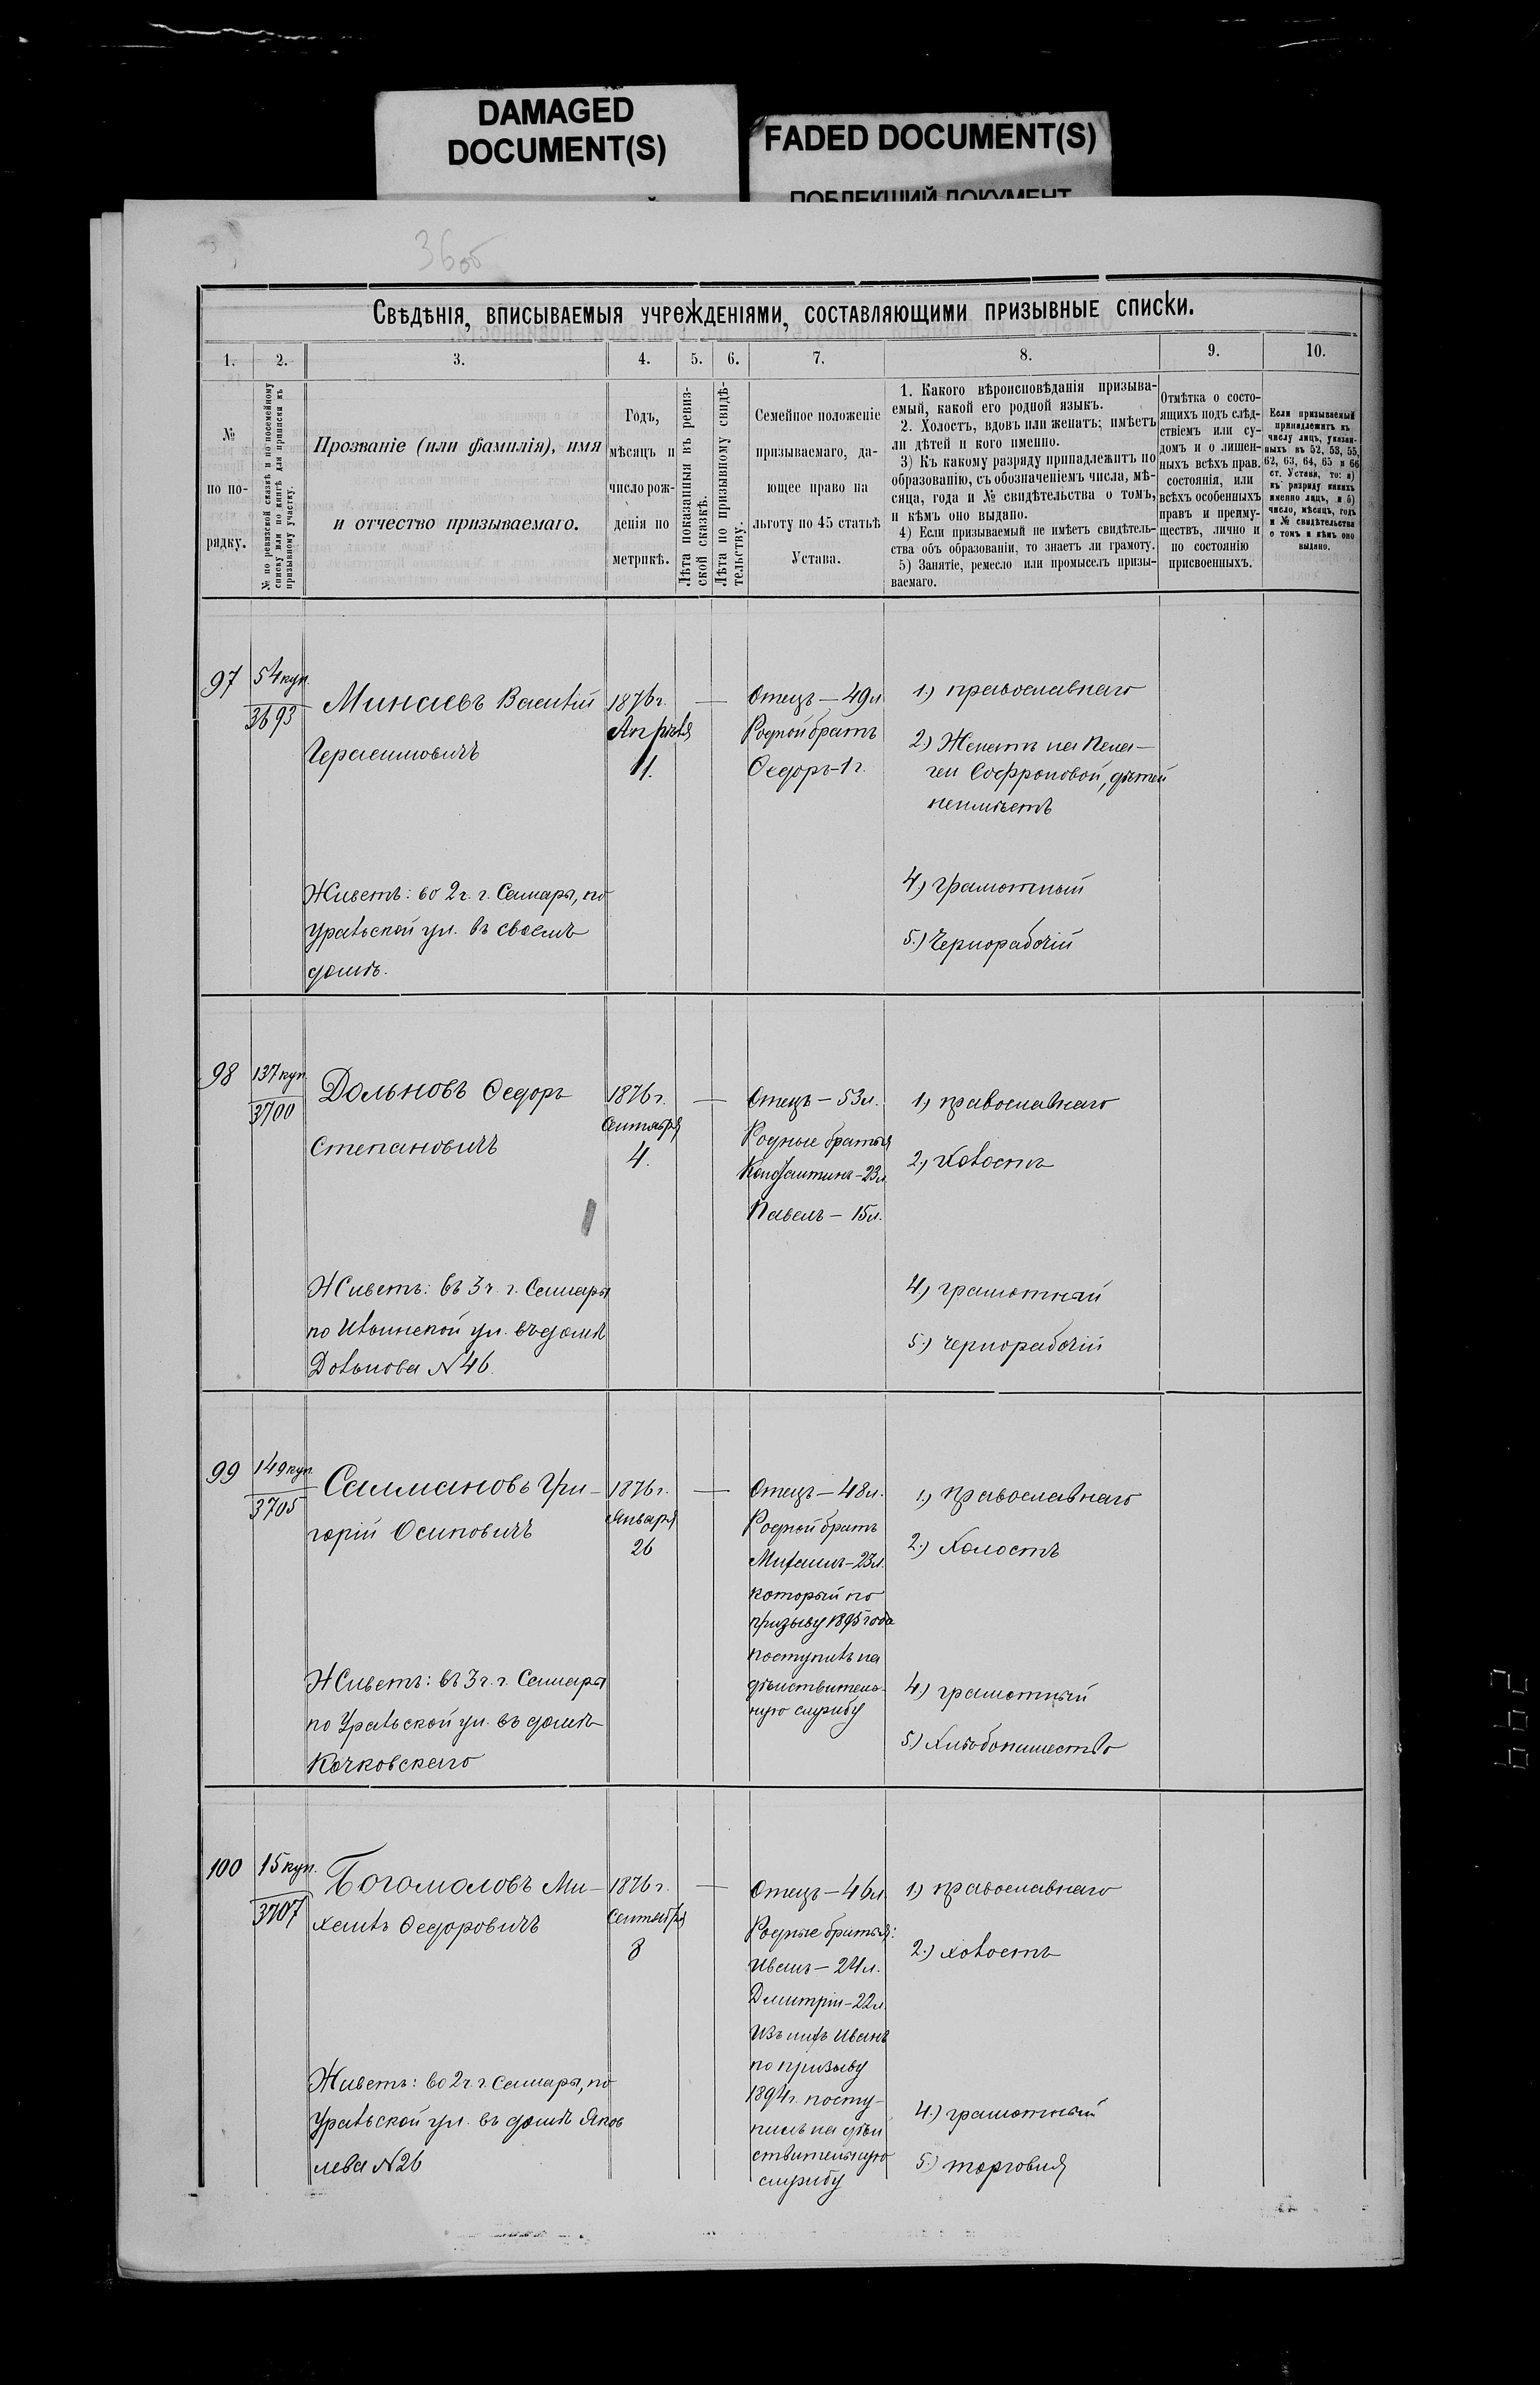 DAMAGED
DOCUMENT(S)
FADED DOCUMENT(S)
ПОБЛЕКШИЙ ДОКУМЕНТ
36об
Свѣдѣнія, вписываемыя учрежденіями, составляющими призывные списки.
1. 2. 3. 4. 5. 6. 7. 8. 9. 10.
№
по по-
рядку.
№ по ревизской сказкѣ и по посемейному
списку или по книгѣ для приписки къ
призывному участку.
Прозваніе (или фамилія), имя
и отчество призываемаго.
Годъ,
мѣсяцъ и
число рож-
денія по
метрикѣ.
Лѣта показанныя въ ревиз-
ской сказкѣ.
Лѣта по призывному свидѣ-
тельству.
Семейное положеніе
призываемаго, да-
ющее право на
льготу по 45 статьѣ
Устава.
1. Какого вѣроисповѣданія призыва-
емый, какой его родной языкъ.
2. Холостъ, вдовъ или женатъ; имѣетъ
ли дѣтей и кого именно.
3) Къ какому разряду принадлежитъ по
образованію, съ обозначеніемъ числа, мѣ-
сяца, года и № свидѣтельства о томъ,
и кѣмъ оно выдано.
4) Если призываемый не имѣетъ свидѣтель-
ства объ образованіи, то знаетъ ли грамоту.
5) Занятіе, ремесло или промыселъ призы-
ваемаго.
Отмѣтка о состо-
ящихъ подъ слѣд-
ствіемъ или су-
домъ и о лишен-
ныхъ всѣхъ прав.
состоянія, или
всѣхъ особенныхъ
правъ и преиму-
ществъ, лично и
по состоянію
присвоенныхъ.
Если призываемый
принадлежитъ къ
числу лицъ, указан-
ныхъ въ 52, 53, 55,
62, 63, 64, 65 и 66
ст. Устава, то: а)
къ разряду какихъ
именно лицъ, и б)
число, мѣсяцъ, годъ
и № свидѣтельства
о томъ и кѣмъ оно
выдано.
97
54 куп.
3693
Минаевъ Василій
Герасимовичъ
Живетъ: во 2 ч. г. Самары, по
Уральской ул. въ своемъ
домѣ.
1876 г.
Апрѣля
11.
—
Отецъ — 49 л
Родной братъ
Ѳедоръ - 1 г.
1) православнаго
2) Женатъ на Пела-
геи Софроновой, дѣтей
неимѣетъ
4) грамотный
5.) Чернорабочій
98
137 куп
3700
Дольновъ Ѳедоръ
Степановичъ
Живетъ: въ 3 ч. г. Самары
по Ильинской ул. въ домѣ
Дольнова № 46.
1876 г.
Сентября
4.
—
Отецъ — 53 л.
Родные братья
Константинъ - 23 л.
Павелъ — 15 л.
1) православнаго
2) Холостъ
4) грамотный
5.) чернорабочій
99
149 куп.
3705
Салмановъ Гри-
горій Осиповичъ
Живетъ: въ 3 ч. г. Самары
по Уральской ул. въ домѣ
Кочковскаго
1876 г.
Января
26
—
Отецъ — 48 л.
Родной братъ
Михаилъ - 23 л.
который по
призыву 1895 года
поступилъ на
дѣйствитель-
ную службу
1.) православнаго
2.) Холостъ
4.) грамотный
5.) Хлѣбопашество
100
15 куп.
3707
Богомоловъ Ми-
хаилъ Ѳедоровичъ
Живетъ: во 2 ч. г. Самары, по
Уральской ул. въ домѣ Яков
лева № 26
1876 г.
Сентября
8
—
Отецъ — 46 л
Родные братья:
Иванъ — 24 л.
Дмитрій - 22 л
Изъ нихъ Иванъ
по призыву
1894 г. посту-
пилъ на дѣй
ствительную
службу
1) православнаго
2.) холостъ
4.) грамотный
5.) торговля
662